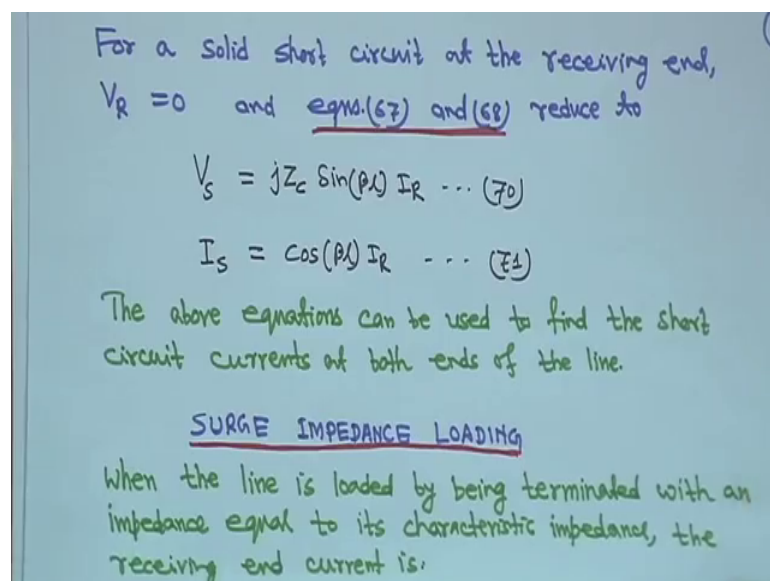 For a solid short circuit at the receiving end,
V_R = 0 and eqns.(67) and (68) reduce to
V_S = jZ_c Sin(βl) I_R ... (70)
I_S = cos(βl) I_R ... (71)
The above equations can be used to find the short
circuit currents at both ends of the line.
SURGE IMPEDANCE LOADING
When the line is loaded by being terminated with an
impedance equal to its characteristic impedance, the
receiving end current is.